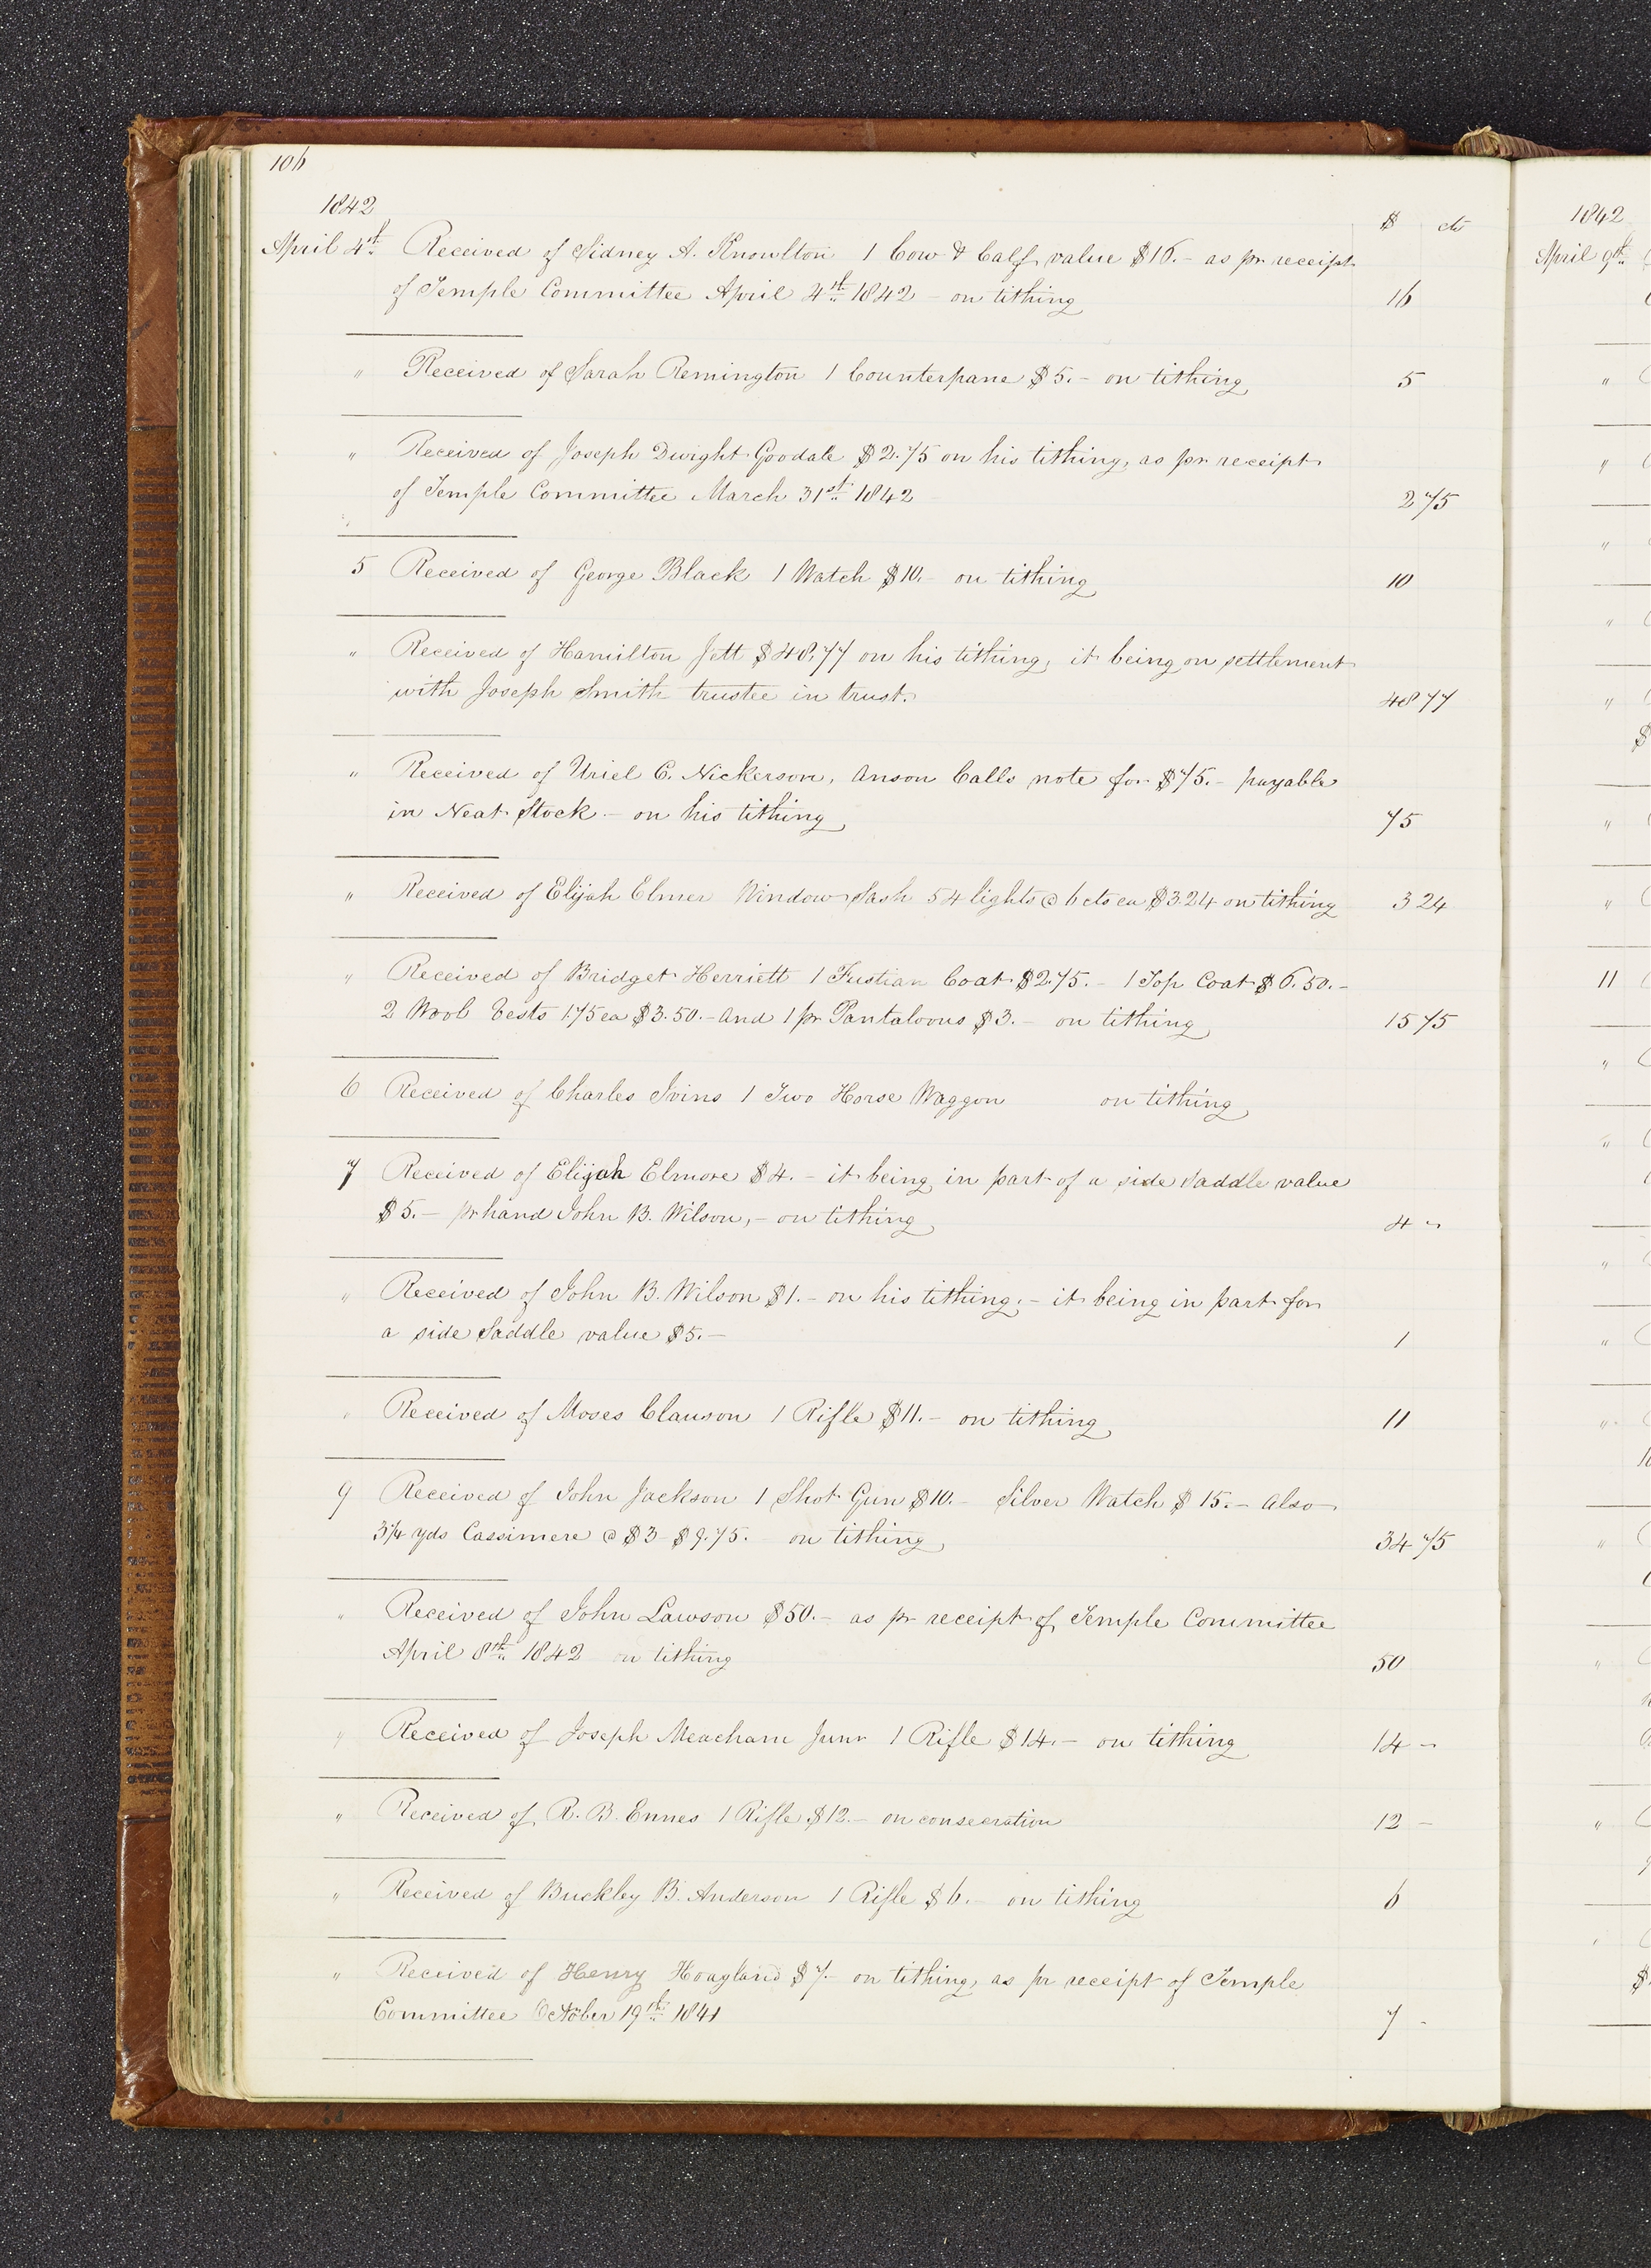 106
1842
$ cts
April 4th Received of Sidney A. Knowlton 1 Cow & Calf value $16.– as pr receipt
of Temple Committee April 4th 1842 – on tithing 16
" Received of Sarah Remington 1 Counterpane $5.– on tithing 5
" Received of Joseph Dwight Goodale $2.75 on his tithing, as pr receipt
of Temple Committee March 31st 1842 2 75
5 Received of George Black 1 Watch $10.– on tithing 10
" Received of Hamilton Jett $48.77 on his tithing, it being on settlement
with Joseph Smith trustee in trust. 48 77
" Received of Uriel C. Nickerson, Anson Calls note for $75.– payable
in Neat Stock – on his tithing 75
" Received of Elijah Elmer Window Sash 54 lights @ 6 cts ea $3.24 on tithing 3 24
" Received of Bridget Herriett 1 Fustian Coat $2.75.– 1 Top Coat $6.50.–
2 Wool Vests 1.75 ea $3.50.– And 1 pr Pantaloons $3.– on tithing 15 75
6 Received of Charles Ivins 1 Two Horse Waggon on tithing
7 Received of Elijah Elmore $4.– it being in part of a side saddle value
$5.– pr hand John B. Wilson,– on tithing 4 "
" Received of John B. Wilson $1.– on his tithing,– it being in part for
a side Saddle value $5.– 1
" Received of Moses Clawson 1 Rifle $11.– on tithing 11
9 Received of John Jackson 1 Shot Gun $10.– Silver Watch $15.– Also
3 1/4 yds Cassimere @ $3– $9.75.– on tithing 34 75
" Received of John Lawson $50.– as pr receipt of Temple Committee
April 8th 1842 on tithing 50
" Received of Joseph Meacham Junr 1 Rifle $14.– on tithing 14 –
" Received of R. B. Ennes 1 Rifle $12.– on consecration 12 –
" Received of Buckley B. Anderson 1 Rifle $6.– on tithing 6
" Received of Henry Hoagland $7.– on tithing, as pr receipt of Temple
Committee October 19th 1841 7 -
1842
April 9th
11